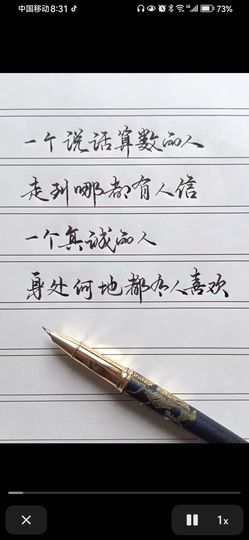 中国移动 8:31
73%
一个说话算数的人
走到哪都有人信
一个真诚的人
身处何地都令人喜欢
1x